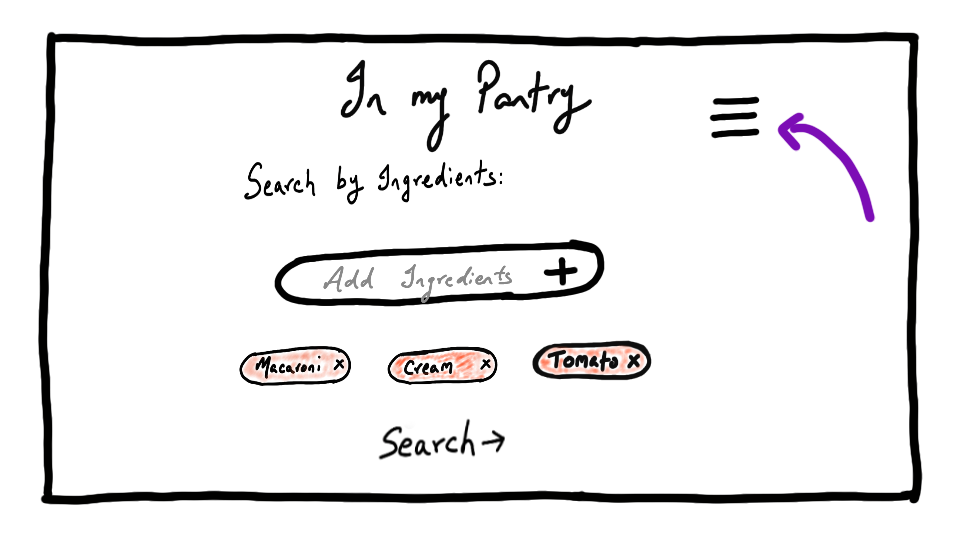 In my Pantry
Search by Ingredients:
Add Ingredients +
Macaroni x Cream x Tomato x
Search→